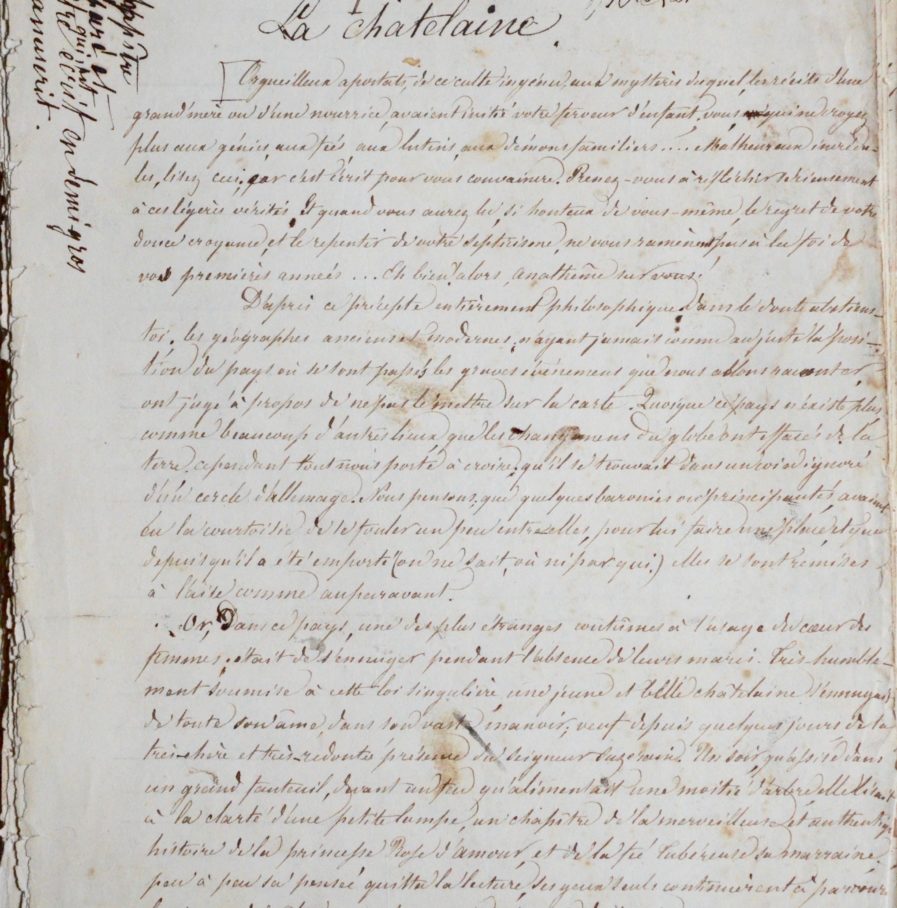 La chatelaine
Orgueilleux apostats, de ce culte ingénu, aux mystères duquel, les récits d'une
grand'mère ou d'une nourrice, avaient initié votre ferveur d'enfant, vous qui ne croyez
plus aux génies, aux fées, aux lutins, aux démons familiers.... Malheureux incrédu-
les, lisez ceci, car c'est écrit pour vous convaincre. Prenez-vous à réfléchir sérieusement
à ces légères vérités. Et quand vous aurez lu, si honteux de vous-même, le regret de votre
douce croyance et le repentir de votre septicisme, ne vous ramènent pas à la foi de
vos premières années... Eh bien! alors, anathême sur vous!
D'après ce précepte entièrement philosophique, dans le doute abstiens-
toi, les géographes anciens et modernes, n'ayant jamais connu au juste la posi-
tion du pays où se sont passés les graves évènemens que nous allons raconter
ont jugé à propos de ne pas le mettre sur la carte. Quoique ce pays n'existe plus
comme beaucoup d'autres lieux que les changemens du globe ont effacés de la
terre, cependant tout nous porte à croire, qu'il se trouvait dans un coin ignoré
d'un cercle d'allemagne. Nous pensons, que quelques baronnies ou principautés, avaient
eu la courtoisie de se fouler un peu entre elles, pour lui faire une place, et que
depuis qu'il a été emporté (on ne sait, où ni par qui.) elles se sont remises
à l'aise comme auparavant.
Or, Dans ce pays, une des plus étranges coutûmes à l'usage du cœur des
femmes, était de s'ennuyer pendant l'absence de leurs maris. Très-humble-
ment soumise à cette loi singulière, une jeune et belle chatelaine s'ennuyait
de toute son âme, dans son vaste manoir, veuf depuis quelques jours de la
très-chère et très-redoutée présence du seigneur suzerain. Un soir, qu'assise dans
un grand fauteuil, devant un feu qu'alimentait une moitié d'arbre elle lisait
à la clarté d'une petite lampe, un chapître de la merveilleuse et authentique
histoire de la princesse Rose d'amour, et de la fée tubéreuse sa marraine.
peu à peu sa pensée quitta la lecture, ses yeux seuls continuèrent à parcourir
écrit en demi gros
manuscrit.